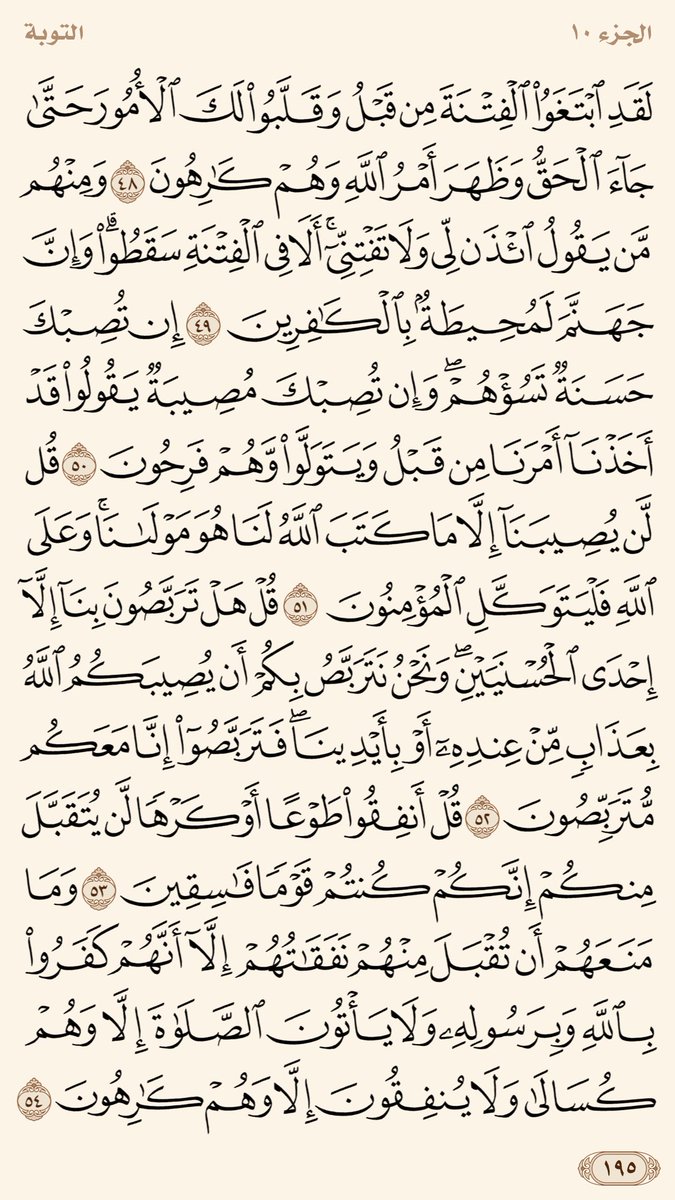 الجزء ١٠
التوبة
لَقَدِ ٱبۡتَغَوُاْ ٱلۡفِتۡنَةَ مِن قَبۡلُ وَقَلَّبُواْ لَكَ ٱلۡأُمُورَ حَتَّىٰ
جَآءَ ٱلۡحَقُّ وَظَهَرَ أَمۡرُ ٱللَّهِ وَهُمۡ كَٰرِهُونَ ٤٨ وَمِنۡهُم
مَّن يَقُولُ ٱئۡذَن لِّي وَلَا تَفۡتِنِّيٓۚ أَلَا فِي ٱلۡفِتۡنَةِ سَقَطُواْۗ وَإِنَّ
جَهَنَّمَ لَمُحِيطَةُۢ بِٱلۡكَٰفِرِينَ ٤٩ إِن تُصِبۡكَ
حَسَنَةٞ تَسُؤۡهُمۡۖ وَإِن تُصِبۡكَ مُصِيبَةٞ يَقُولُواْ قَدۡ
أَخَذۡنَآ أَمۡرَنَا مِن قَبۡلُ وَيَتَوَلَّواْ وَّهُمۡ فَرِحُونَ ٥٠ قُل
لَّن يُصِيبَنَآ إِلَّا مَا كَتَبَ ٱللَّهُ لَنَا هُوَ مَوۡلَىٰنَاۚ وَعَلَى
ٱللَّهِ فَلۡيَتَوَكَّلِ ٱلۡمُؤۡمِنُونَ ٥١ قُلۡ هَلۡ تَرَبَّصُونَ بِنَآ إِلَّآ
إِحۡدَى ٱلۡحُسۡنَيَيۡنِۖ وَنَحۡنُ نَتَرَبَّصُ بِكُمۡ أَن يُصِيبَكُمُ ٱللَّهُ
بِعَذَابٖ مِّنۡ عِندِهِۦٓ أَوۡ بِأَيۡدِينَاۖ فَتَرَبَّصُوٓاْ إِنَّا مَعَكُم
مُّتَرَبِّصُونَ ٥٢ قُلۡ أَنفِقُواْ طَوۡعًا أَوۡ كَرۡهٗا لَّن يُتَقَبَّلَ
مِنكُمۡ إِنَّكُمۡ كُنتُمۡ قَوۡمٗا فَٰسِقِينَ ٥٣ وَمَا
مَنَعَهُمۡ أَن تُقۡبَلَ مِنۡهُمۡ نَفَقَٰتُهُمۡ إِلَّآ أَنَّهُمۡ كَفَرُواْ
بِٱللَّهِ وَبِرَسُولِهِۦ وَلَا يَأۡتُونَ ٱلصَّلَوٰةَ إِلَّا وَهُمۡ
كُسَالَىٰ وَلَا يُنفِقُونَ إِلَّا وَهُمۡ كَٰرِهُونَ ٥٤
١٩٥